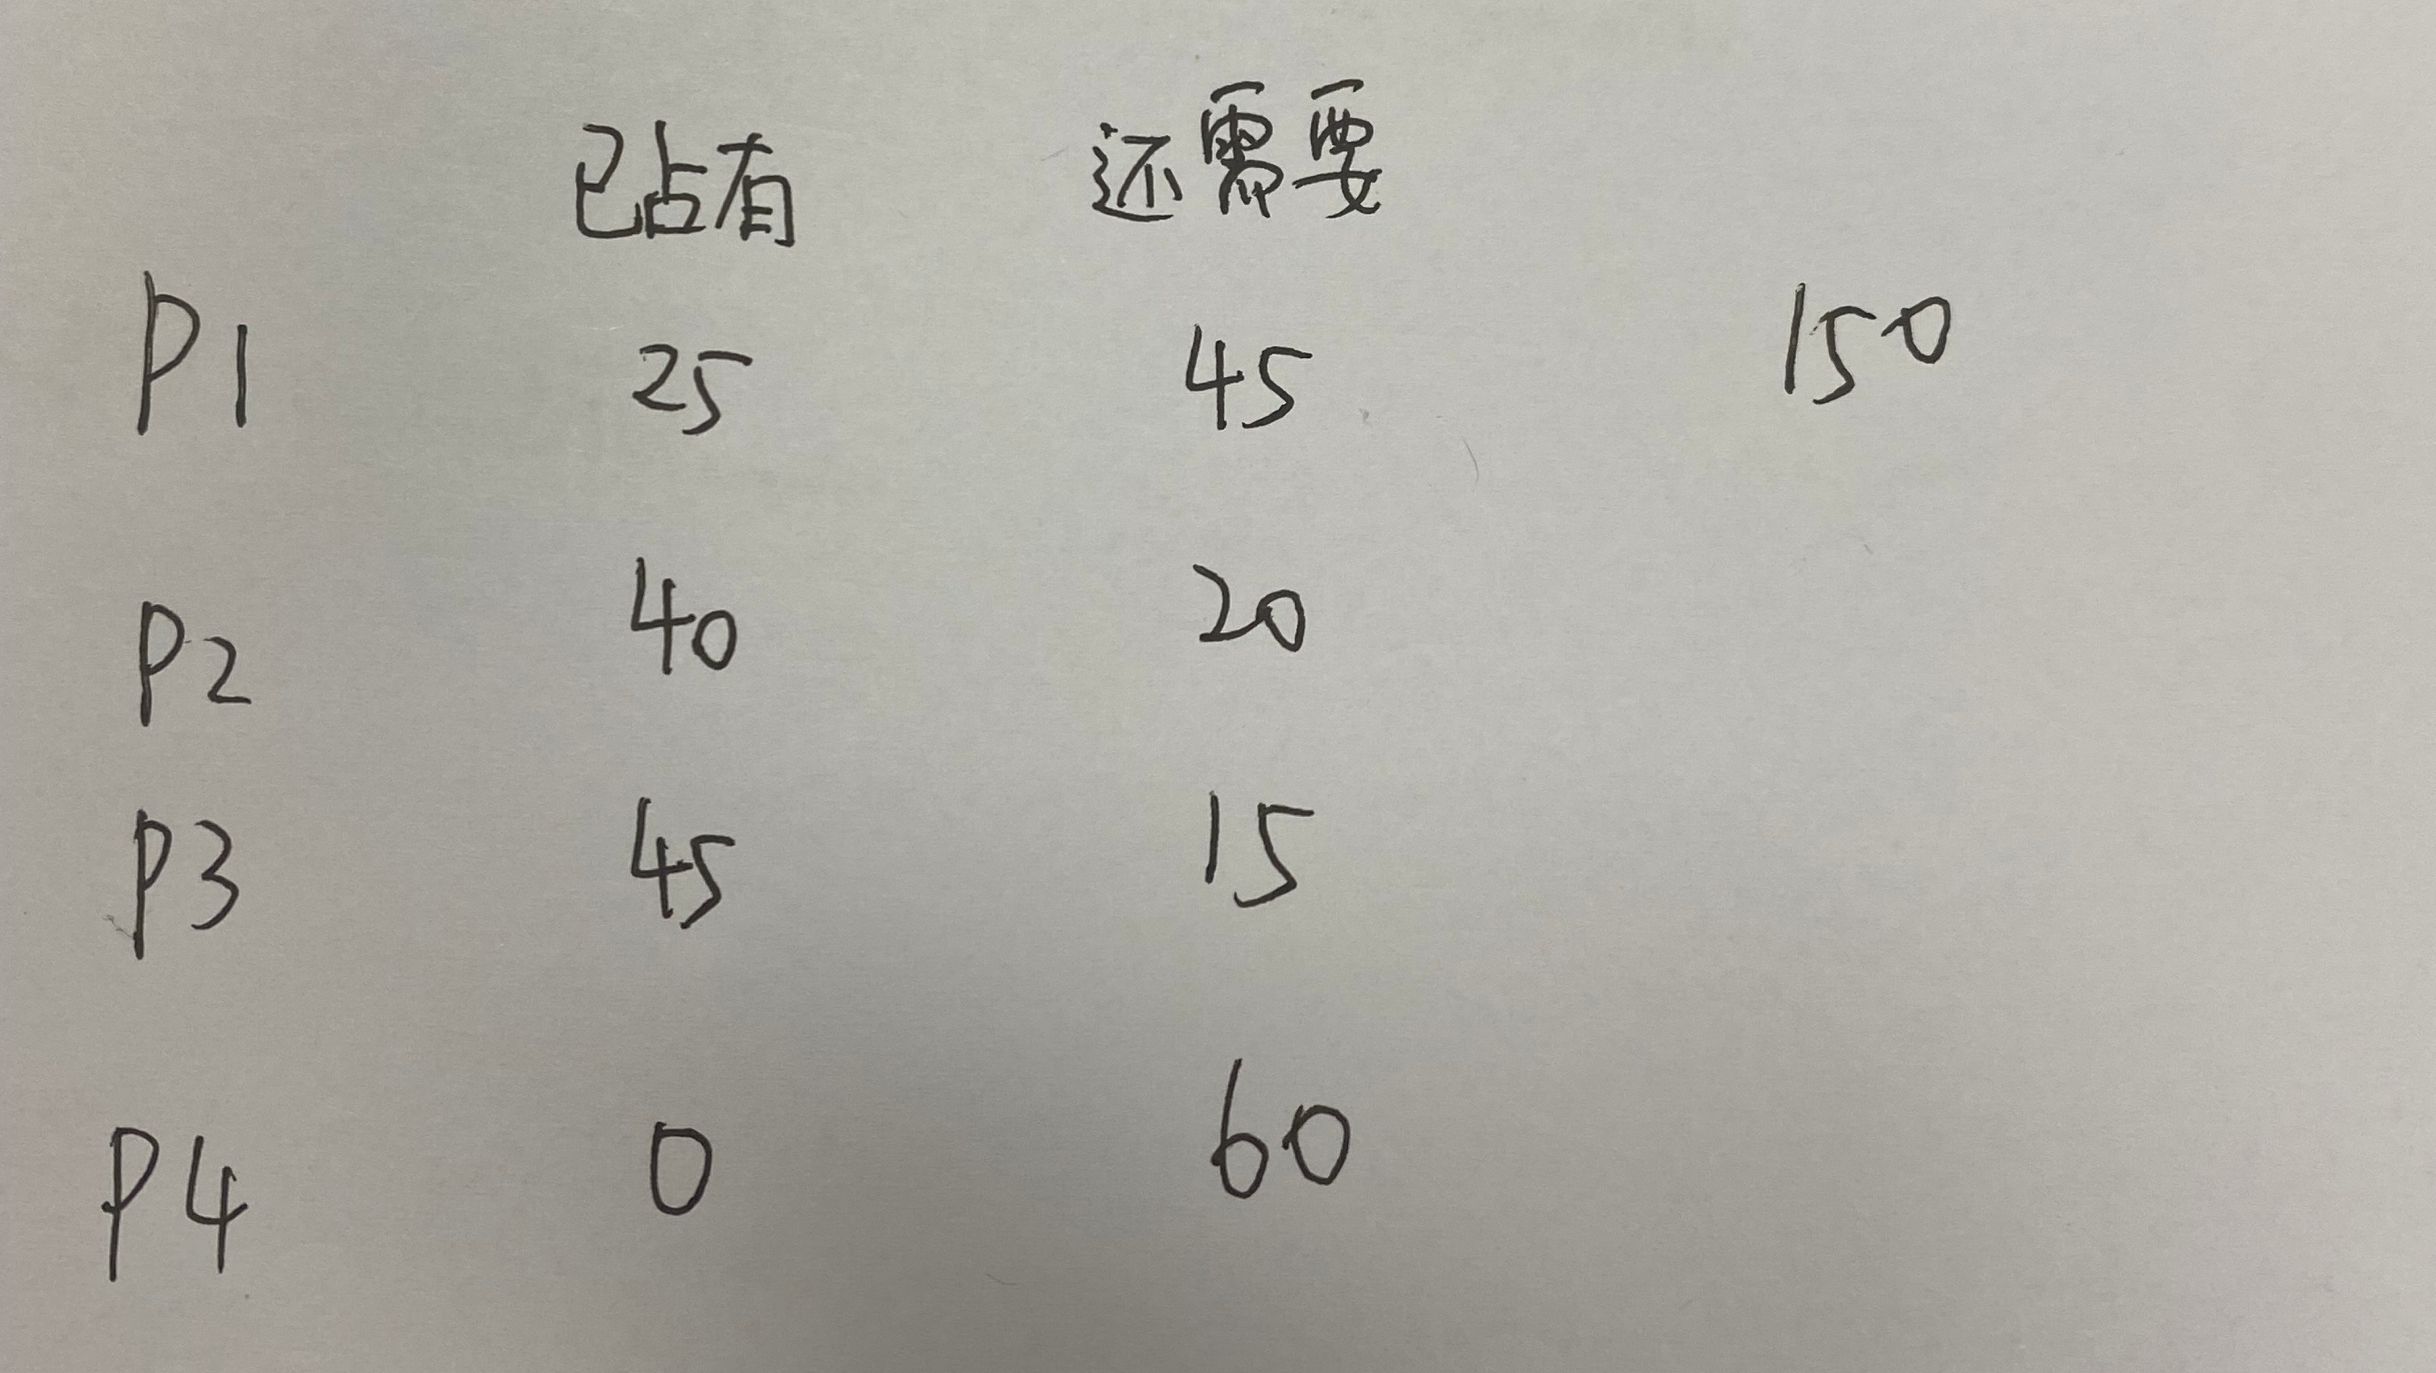 已占有 还需要
P1 25 45 150
P2 40 20
P3 45 15
P4 0 60